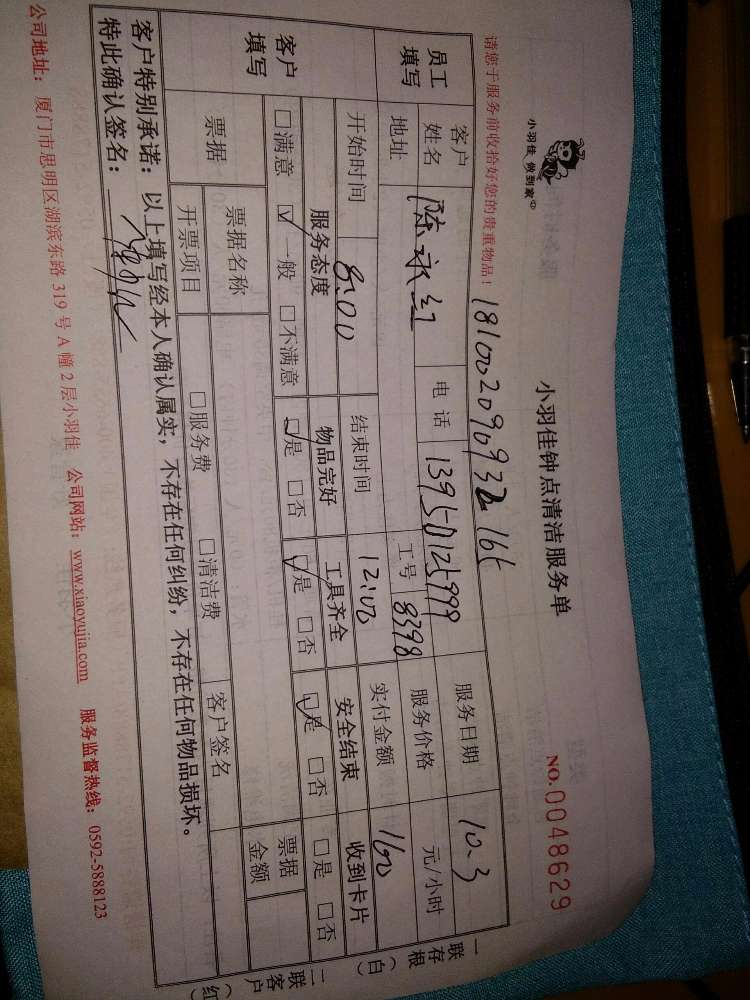 小羽佳 做到家
小羽佳钟点清洁服务单
NO.0048629
请您于服务前收拾好您的贵重物品！
员工填写
客户姓名 陈永红 电话 13950125999 服务日期 10.3
地址 工号 8398 服务价格 元/小时
开始时间 8:00 结束时间 12:00 实付金额 160
客户填写
服务态度 物品完好 工具齐全 安全结束 收到卡片
□满意 ☑一般 □不满意 ☑是 □否 ☑是 □否 ☑是 □否 □是 □否
票据 票据名称 票据金额
开票项目 □服务费 □清洁费 客户签名
客户特别承诺：以上填写经本人确认属实，不存在任何纠纷，不存在任何物品损坏。
特此确认签名：
公司地址：厦门市思明区湖滨东路 319 号 A 幢 2 层小羽佳 公司网站：www.xiaoyujia.com 服务监督热线：0592-5888123
一联存根（白）
二联客户（红